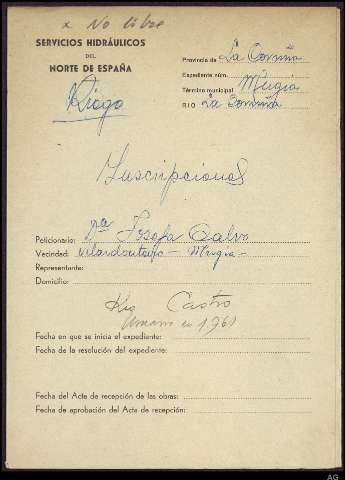 x No libre
SERVICIOS HIDRÁULICOS
DEL
NORTE DE ESPAÑA
Riego
Provincia de La Coruña
Expediente núm.
Término municipal Mugia
RIO La Coruña
Inscripciones
Peticionario: Dª Josefa Calvo
Vecindad: Vilardontayo - Mugia -
Representante:
Domicilio:
Rio Castro
en 1961
Fecha en que se inicia el expediente:
Fecha de la resolución del expediente:
Fecha del Acta de recepción de las obras:
Fecha de aprobación del Acta de recepción:
AG